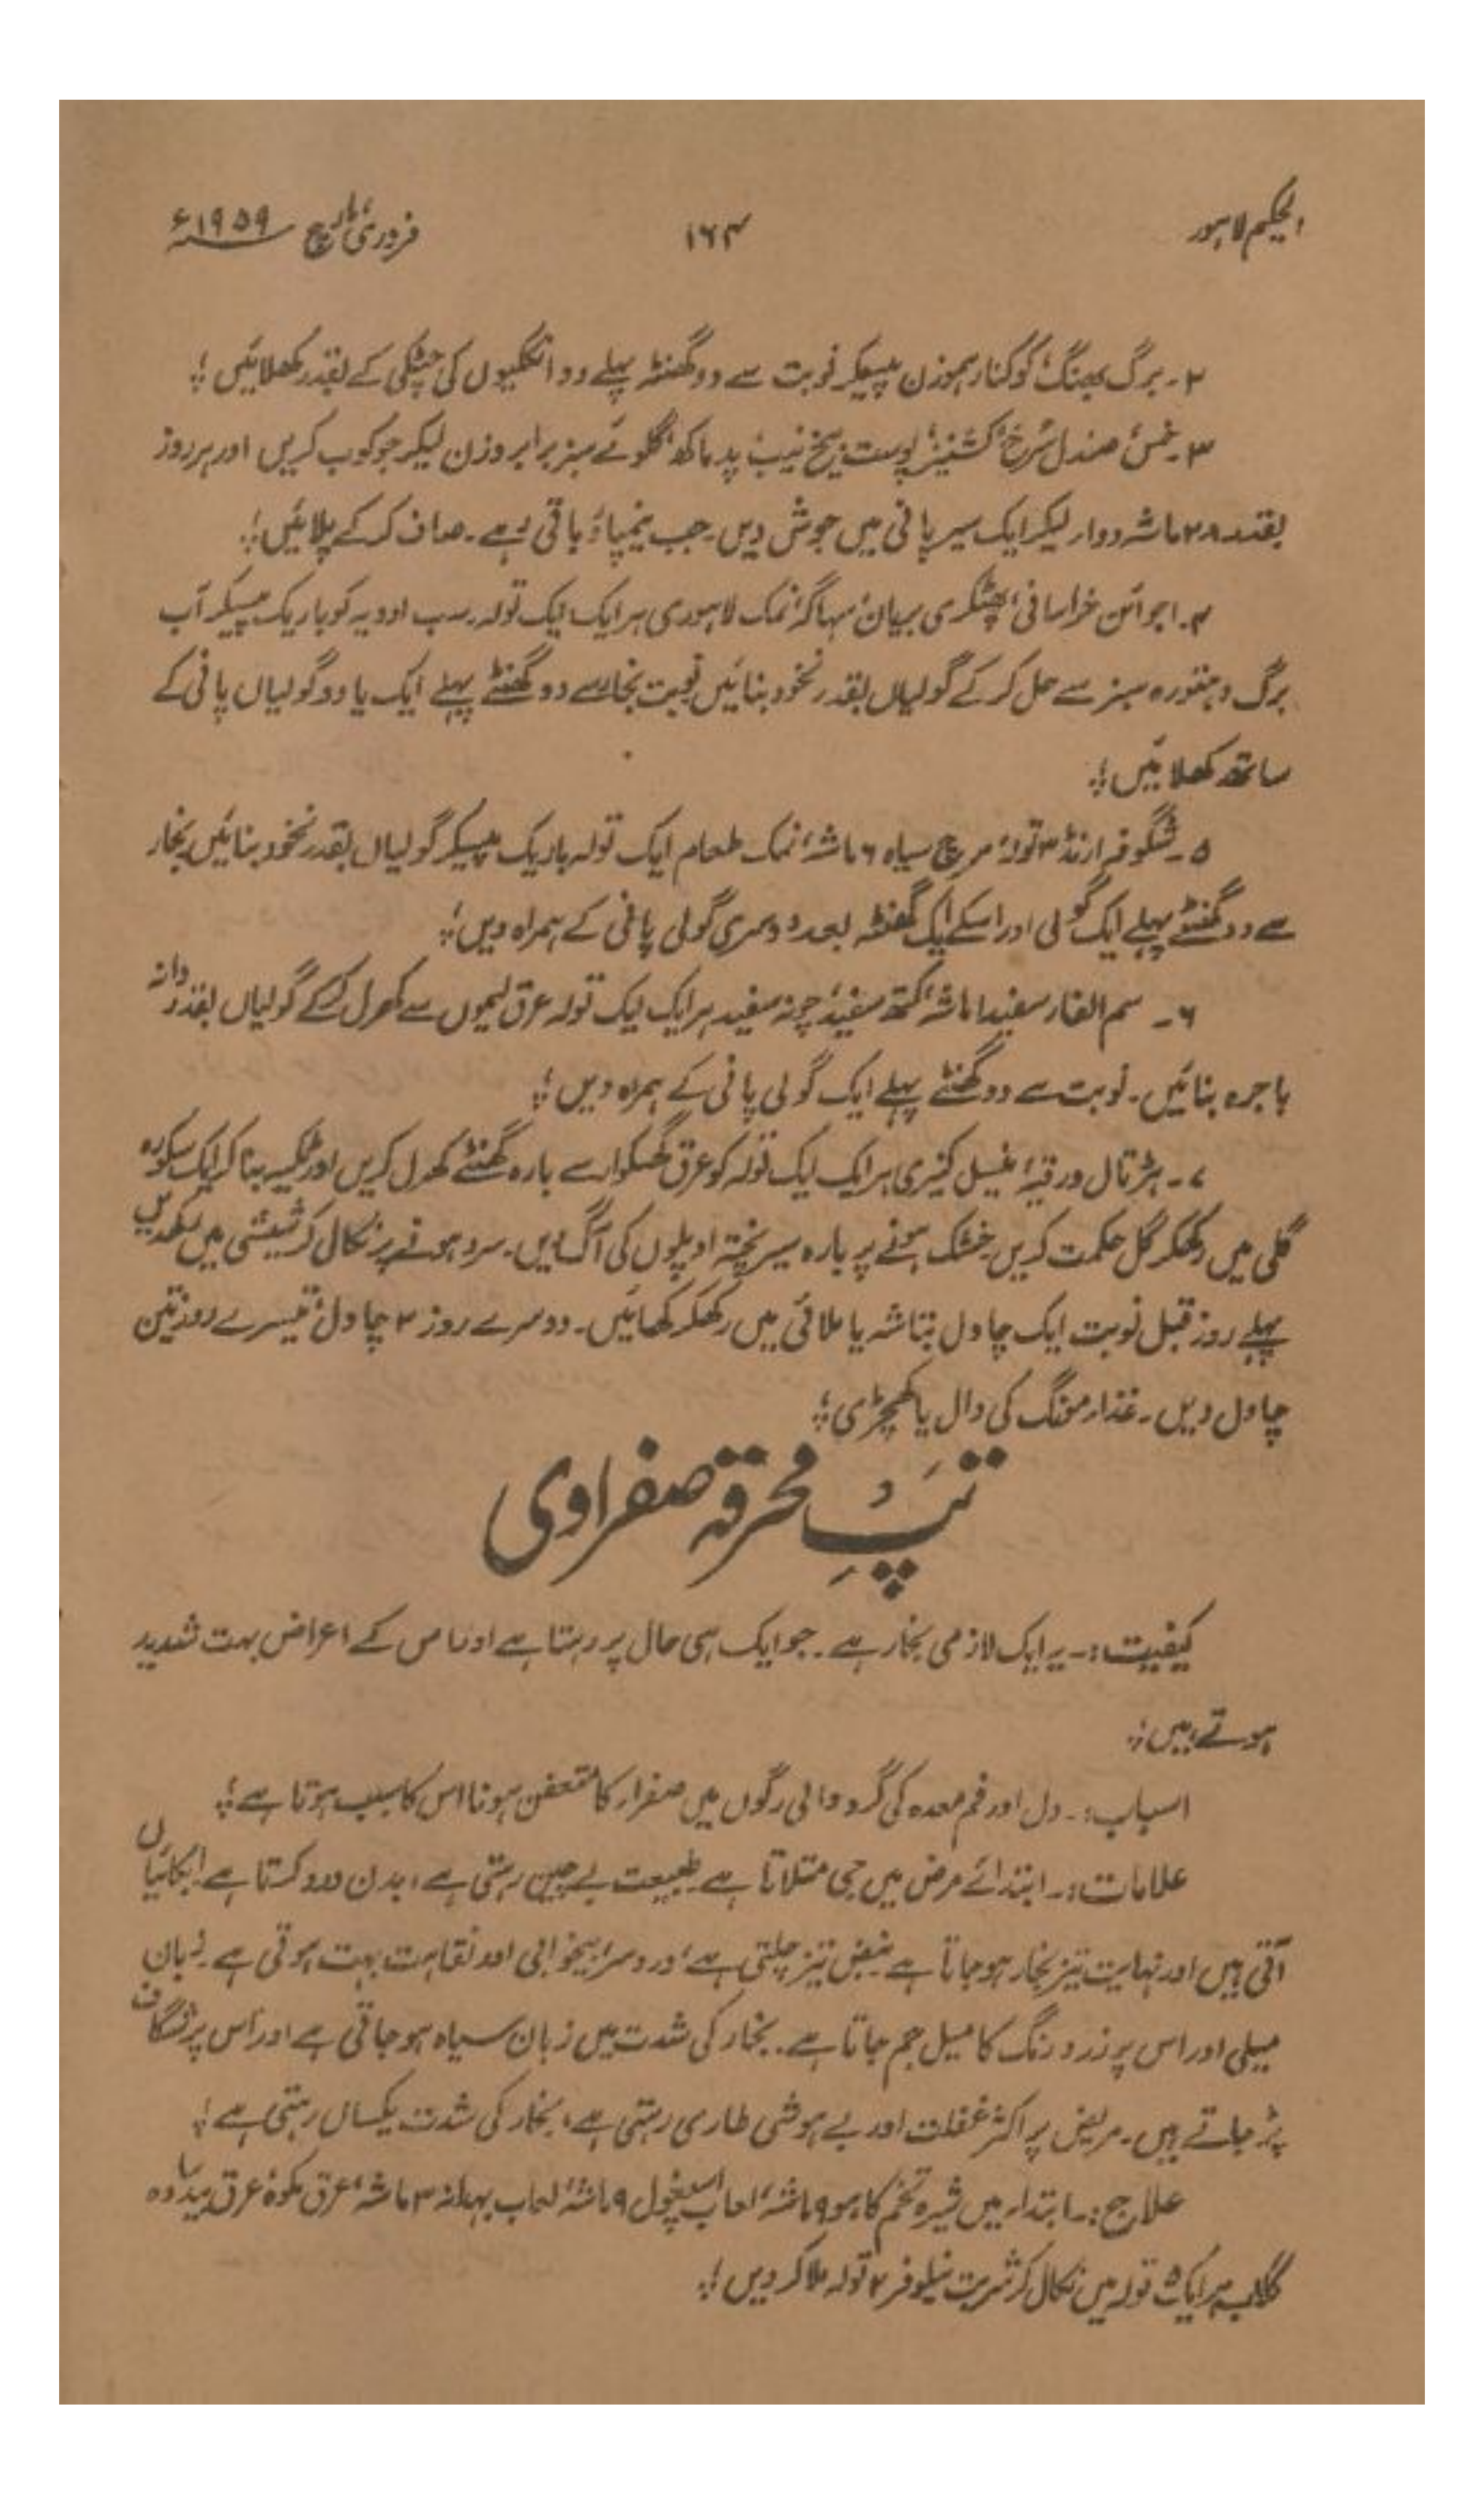 الحکیم لاہور
۱۶۴
فروری، مارچ ۱۹۵۹ء
۲۔ برگ بھنگ، کوکنار ہموزن پیسکر نوبت سے دو گھنٹہ پہلے دو انگلیوں کی چٹکی کے بقدر کھلائیں؛
۳۔ خس، صندل سُرخ، کشنیز، پوست بیخ نیب، پدماکھ، گلوئے سبز برابر وزن لیکر جوکوب کریں اور ہر روز
بقدر ۲۸ ماشہ دوا لیکر ایک سیر پانی میں جوش دیں۔ جب نیمپاؤ باقی رہے۔ صاف کر کے پلائیں؛
۴۔ اجوائن خراسانی، پھٹکری بریان، سہاگہ، نمک لاہوری ہر ایک ایک تولہ۔ سب ادویہ کو باریک پیسکر آب
برگ دہتورہ سبز سے حل کر کے گولیاں بقدر نخود بنائیں نوبت بخار سے دو گھنٹے پہلے ایک یا دو گولیاں پانی کے
ساتھ کھلائیں؛
۵۔ شگوفہ ارنڈ ۳ تولہ، مرچ سیاہ ۶ ماشہ، نمک طعام ایک تولہ باریک پیسکر گولیاں بقدر نخود بنائیں بخار
سے دو گھنٹے پہلے ایک گولی اور اسکے ایک گھنٹہ بعد دوسری گولی پانی کے ہمراہ دیں؛
۶۔ سم الفار سفید ۱ ماشہ، کتھ سفید، چونہ سفید ہر ایک ایک تولہ عرق لیموں سے کھرل کر کے گولیاں بقدر دانہ
باجرہ بنائیں۔ نوبت سے دو گھنٹے پہلے ایک گولی پانی کے ہمراہ دیں؛
۷۔ ہڑتال ورقیہ، نیسل کنیری ہر ایک ایک تولہ کو عرق گھیکوار سے بارہ گھنٹے کھرل کریں اور ٹکیہ بنا کر ایک سکورہ
گلی میں رکھکر گل حکمت کریں خشک ہونے پر بارہ سیر پختہ اوپلوں کی آگ دیں۔ سرد ہونے پر نکال کر شیشی میں رکھدیں
پہلے روز قبل نوبت ایک چاول بتاشہ یا ملائی میں رکھکر کھائیں۔ دوسرے روز ۲ چاول، تیسرے روز تین
چاول دیں۔ غذا، مونگ کی دال یا کھچڑی؛
تپِ محرقہ صفراوی
کیفیت:۔ یہ ایک لازمی بخار ہے۔ جو ایک ہی حال پر رہتا ہے اور اس کے اعراض بہت شدید
ہوتے ہیں؛
اسباب:۔ دل اور فم معدہ کی گرد والی رگوں میں صفرا، کا متعفن ہونا اس کا سبب ہوتا ہے؛
علامات:۔ ابتدائے مرض میں جی متلاتا ہے طبیعت بے چین رہتی ہے، بدن درد کرتا ہے ابکائیاں
آتی ہیں اور نہایت تیز بخار ہو جاتا ہے نبض تیز چلتی ہے، درد سر، بیخوابی اور نقاہت بہت ہوتی ہے۔ زبان
میلی اور اس پر زرد رنگ کا میل جم جاتا ہے۔ بخار کی شدت میں زبان سیاہ ہو جاتی ہے اور اس پر شگاف
پڑ جاتے ہیں۔ مریض پر اکثر غفلت اور بے ہوشی طاری رہتی ہے، بخار کی شدت یکساں رہتی ہے؛
علاج:۔ ابتدا، میں شیرہ تخم کاہو ۹ ماشہ، لعاب اسپغول ۹ ماشہ، لعاب بہدانہ ۳ ماشہ، عرق مکوہ، عرق بیدسادہ
گلاب ہر ایک ۵ تولہ میں نکال کر شربت نیلوفر ۲ تولہ ملا کر دیں؛